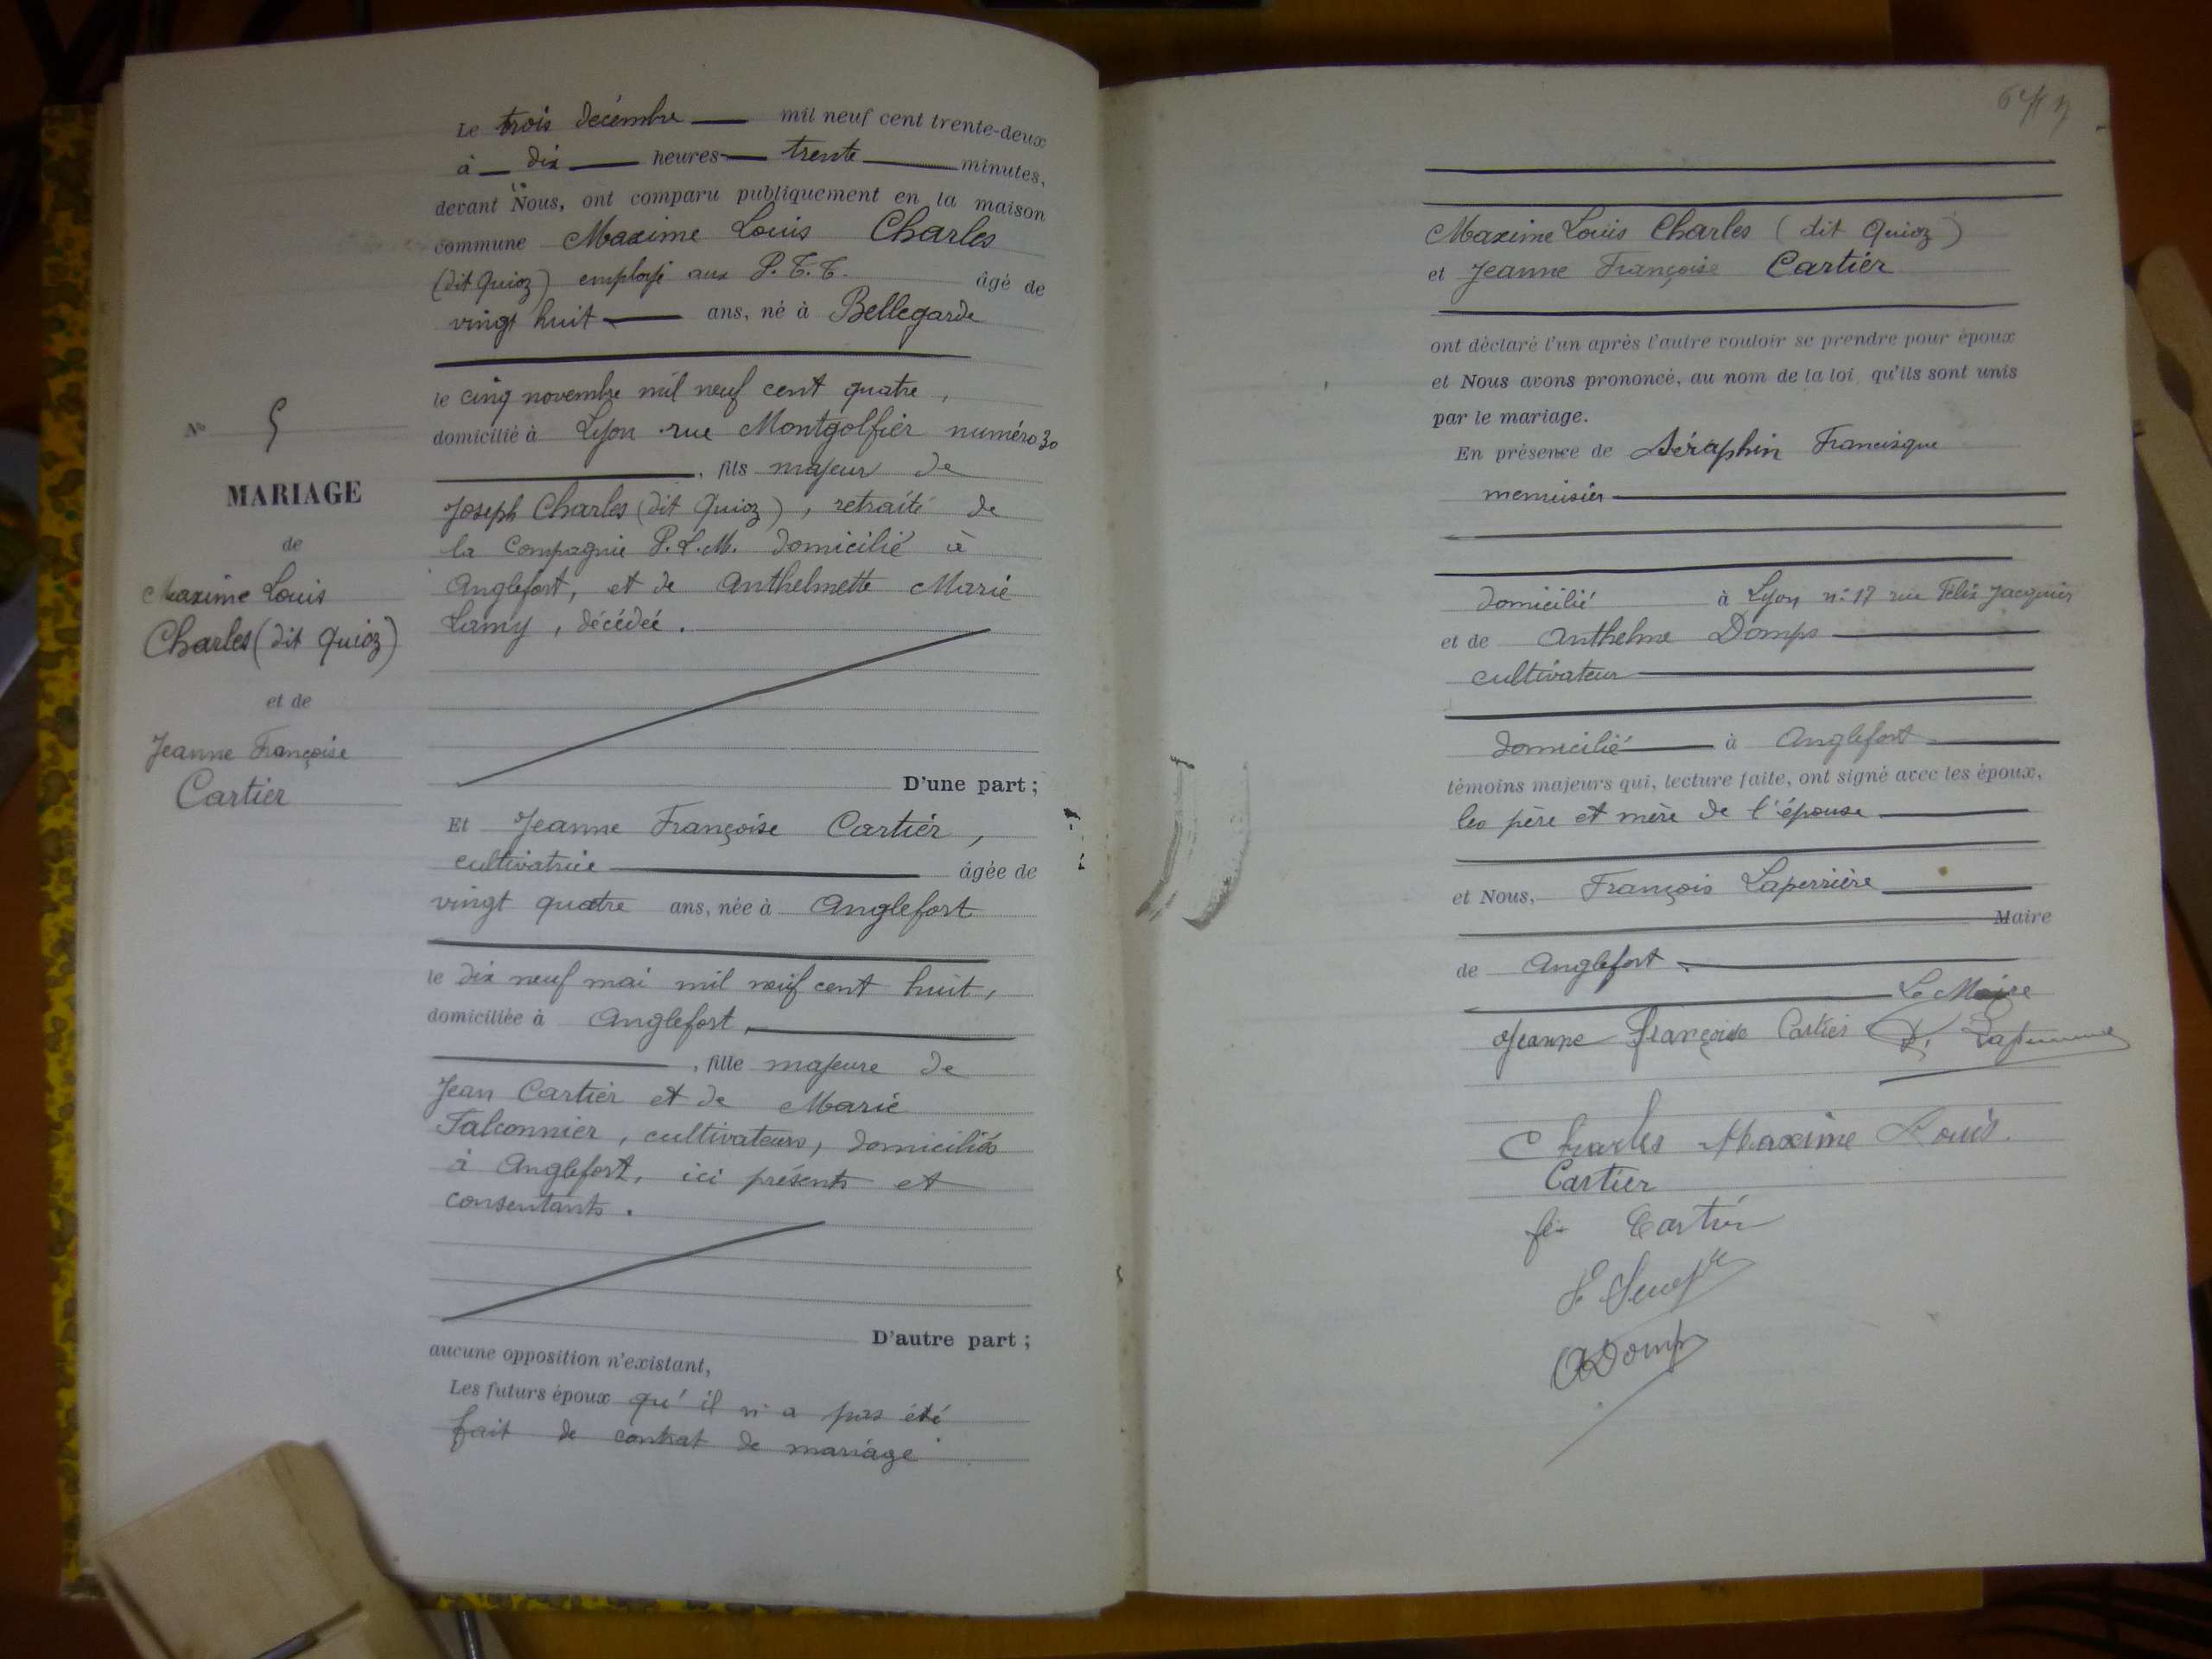 Le trois décembre mil neuf cent trente-deux
à dix heures trente minutes,
devant Nous, ont comparu publiquement en la maison
commune Maxime Louis Charles
(dit Quioz) employé aux P.T.T. âgé de
vingt huit ans, né à Bellegarde
le cinq novembre mil neuf cent quatre,
domicilié à Lyon rue Montgolfier numéro 30
, fils majeur de
Joseph Charles (dit Quioz), retraité de
la Compagnie P.L.M. domicilié à
Anglefort, et de Anthelmette Marie
Lamy, décédée.
D'une part ;
Et Jeanne Françoise Cartier,
cultivatrice âgée de
vingt quatre ans, née à Anglefort
le dix neuf mai mil neuf cent huit,
domiciliée à Anglefort,
, fille majeure de
Jean Cartier et de Marie
Falconnier, cultivateurs, domiciliés
à Anglefort, ici présents et
consentants.
D'autre part ;
aucune opposition n'existant,
Les futurs époux qu'il n'a pas été
fait de contrat de mariage
No 5
MARIAGE
de
Maxime Louis
Charles (dit Quioz)
et de
Jeanne Françoise
Cartier
Maxime Louis Charles (dit Quioz)
et Jeanne Françoise Cartier
ont déclaré l'un après l'autre vouloir se prendre pour époux
et Nous avons prononcé, au nom de la loi, qu'ils sont unis
par le mariage.
En présence de Séraphin Francisque
menuisier
domicilié à Lyon n° 17 rue Félix Jacquier
et de Anthelme Domps
cultivateur
domicilié à Anglefort
témoins majeurs qui, lecture faite, ont signé avec les époux,
les père et mère de l'épouse
et Nous, François Laperrière
Maire
de Anglefort
Le Maire
Jeanne Françoise Cartier
Charles Maxime Louis.
Cartier
Cartier
ADomps